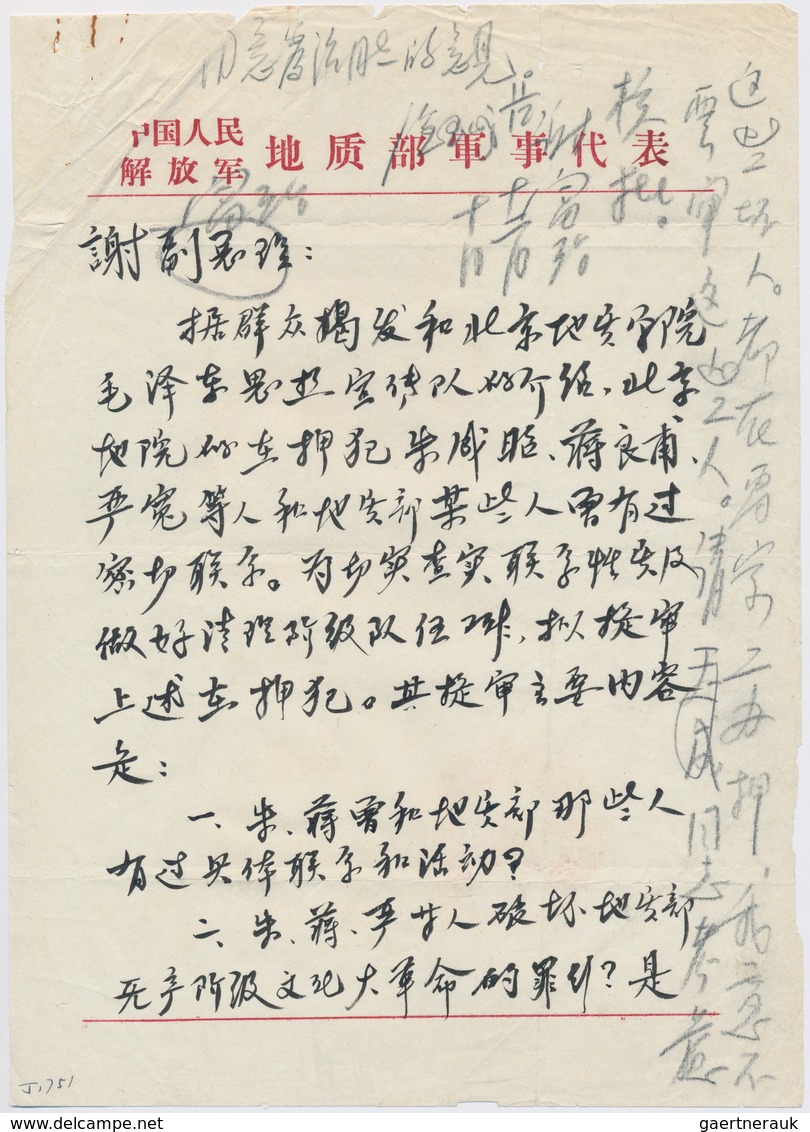 同意 的意见。
核批。
中国人民
解放军 地质部軍事代表
富治
十一月
十
謝副总理：
据群众揭发和北京地质学院
毛泽东思想宣传队的介绍，北京
地院的在押犯朱成昭、蒋良甫、
严宽等人和地质部某些人曾有过
密切联系。为切实查实联系性质及
做好清理阶级队伍工作，拟提审
上述在押犯。其提审主要内容
是：
一、朱、蒋曾和地质部那些人
有过具体联系和活动？
二、朱、蒋、严等人破坏地质部
无产阶级文化大革命的罪行？是
这些坏人。都在 押，
要审这 人。请 成同志
J1751
gaertnerauk